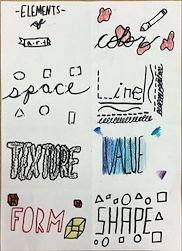 -ELEMENTS-
of
art
color
space
Line
TEXTURE
VALUE
FORM
SHAPE